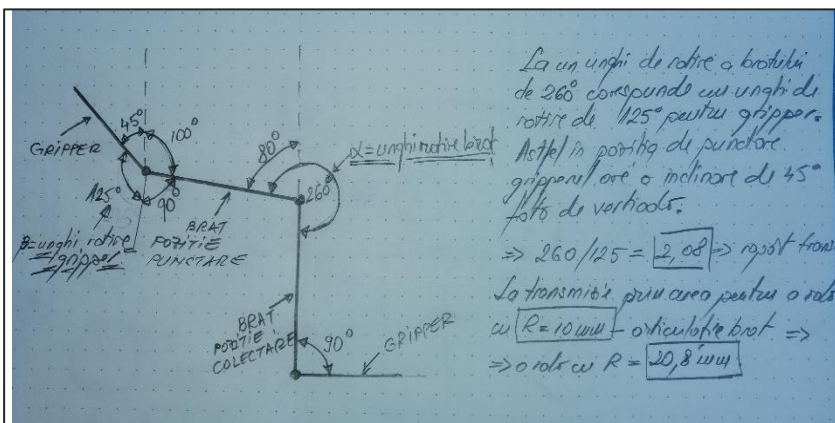 GRIPPER
45°
100°
125°
90°
β=unghi rotire
gripper
BRAT
POZITIE
PUNCTARE
80°
α=unghi rotire brat
260°
BRAT
POZITIE
COLECTARE
90°
GRIPPER
La un unghi de rotire a bratului
de 260° corespunde un unghi de
rotire de 125° pentru gripper.
Astfel in pozitia de punctare
gripperul are o inclinare de 45°
fata de verticala.
=> 260/125 = 2,08 => raport trans
La transmisie prin curea pentru o rota
cu R = 10 mm - articulatie brat =>
=> o rota cu R = 20,8 mm